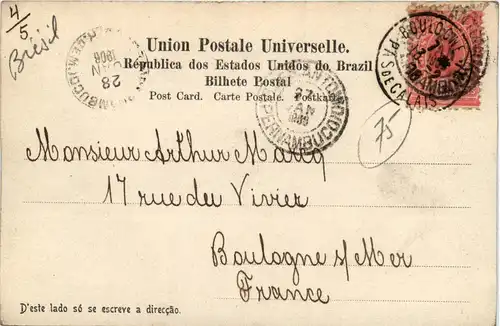 4/5
Brésil
Union Postale Universelle.
Republica dos Estados Unidos do Brazil
Bilhete Postal
Post Card. Carte Postale. Postkarte
75
Monsieur Arthur Marcq
17 rue du Vivier
Boulogne s/Mer
France
D'este lado só se escreve a direcção.
BOULOGNE
PAS DE CALAIS
27
JAN
PERNAMBUCO
28
JAN
1906